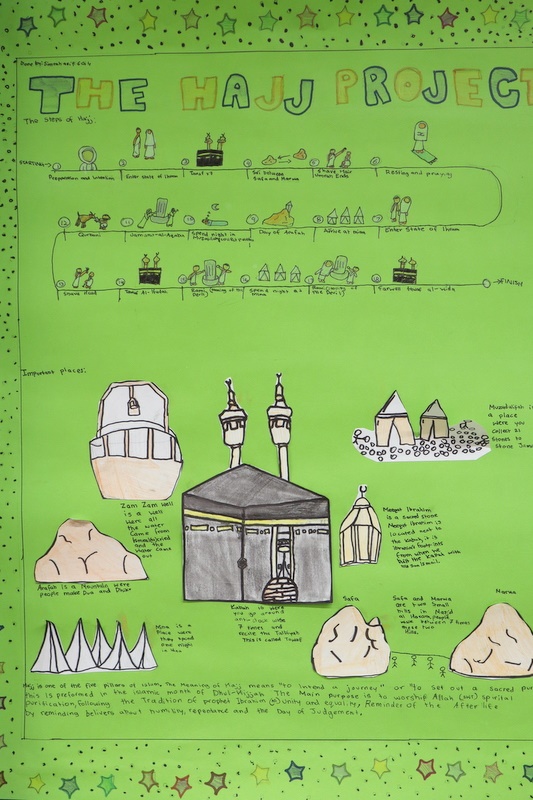 THE HAJJ PROJECT
The steps of Hajj:
STARTING
Preparation and intention
Enter state of Ihram
Tawaf x7
Sai between
Safa and Marwa
Shave Hair
Umrah Ends
Resting and praying
Enter State of Ihram
Arrive at Mina
Day of Arafah
Spend night in
Jamarat-al-Aqaba
Qurbani
Shave Head
spend night at
Mina
Farwell tawaf al-wida
FINISH
Important places:
Zam Zam Well
is a well
were all
the water
came from
and the
water came
out
Arafah is a Mountain were
people make Dua and Dhikr
Mina is a
Place were
you spend
one night
Kabah is were
you go around
7 times and
recite the Talbiyah
This is called Tawaf
Muzdalifah is
a place
were you
collect 21
stones to
stone
Maqam Ibrahim
is a sacred stone
Maqam Ibrahim is
located next to
the Kabah, it is
Ibrahims foot-prints
from when he
built the Kabah with
his son Ismail.
Safa
Safa and Marwa
are two small
hills in Masjid
al Haram, people
walk between 7 times
these two
hills.
Marwa
Hajj is one of the five pillars of Islam, The meaning of Hajj means "to intend a journey" or "to set out a sacred
This is preformed in the islamic month of Dhul-Hijjah The Main purpose is to worship Allah (swt) spirital
purification, following the Tradition of prophet Ibrahim unity and equality, Reminder of the After life
by reminding belivers about humility, repentance and the Day of Judgement.